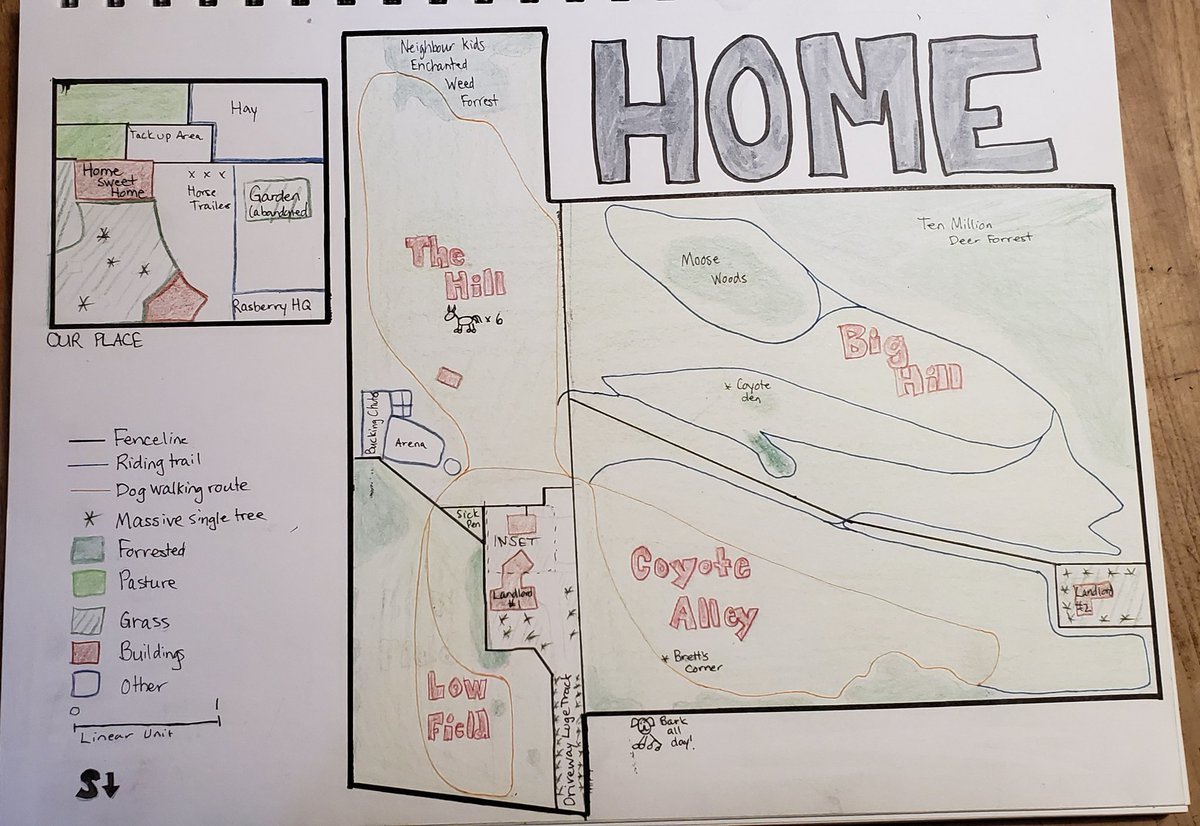 HOME
Neighbour kids
Enchanted
Weed
Forrest
Hay
Tack up Area
Home
Sweet
Home
x x x
Horse
Trailer
Garden
(abandoned)
Rasberry HQ
OUR PLACE
The
Hill
x 6
Moose
Woods
Ten Million
Deer Forrest
Big
Hill
* Coyote
den
Bucking Chute
Arena
Sick
Pen
INSET
Landlord
#1
Coyote
Alley
* Brett's
Corner
Landlord
#2
Low
Field
Driveway Luge Track
Bark
all
day!
Fenceline
Riding trail
Dog walking route
Massive single tree
Forrested
Pasture
Grass
Buildings
Other
0 1
Linear Unit
S↓